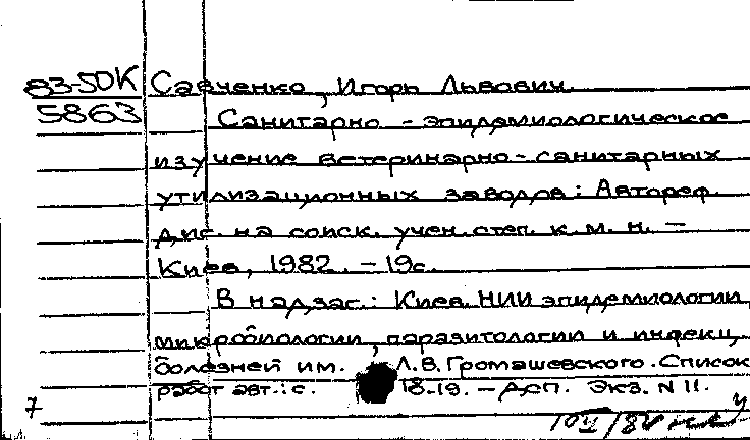 83-50К Савченко, Игорь Львович.
5863 Санитарно-эпидемиологическое
изучение ветеринарно-санитарных
утилизационных заводов: Автореф.
дис. на соиск. учен. степ. к. м. н. –
Киев, 1982. – 19с.
В надзаг.: Киев. НИИ эпидемиологии,
микробиологии, паразитологии и инфекц.
болезней им. Л.В. Громашевского. Список
работ авт.: с. 18-19. – ДСП. Экз. N 11.
7